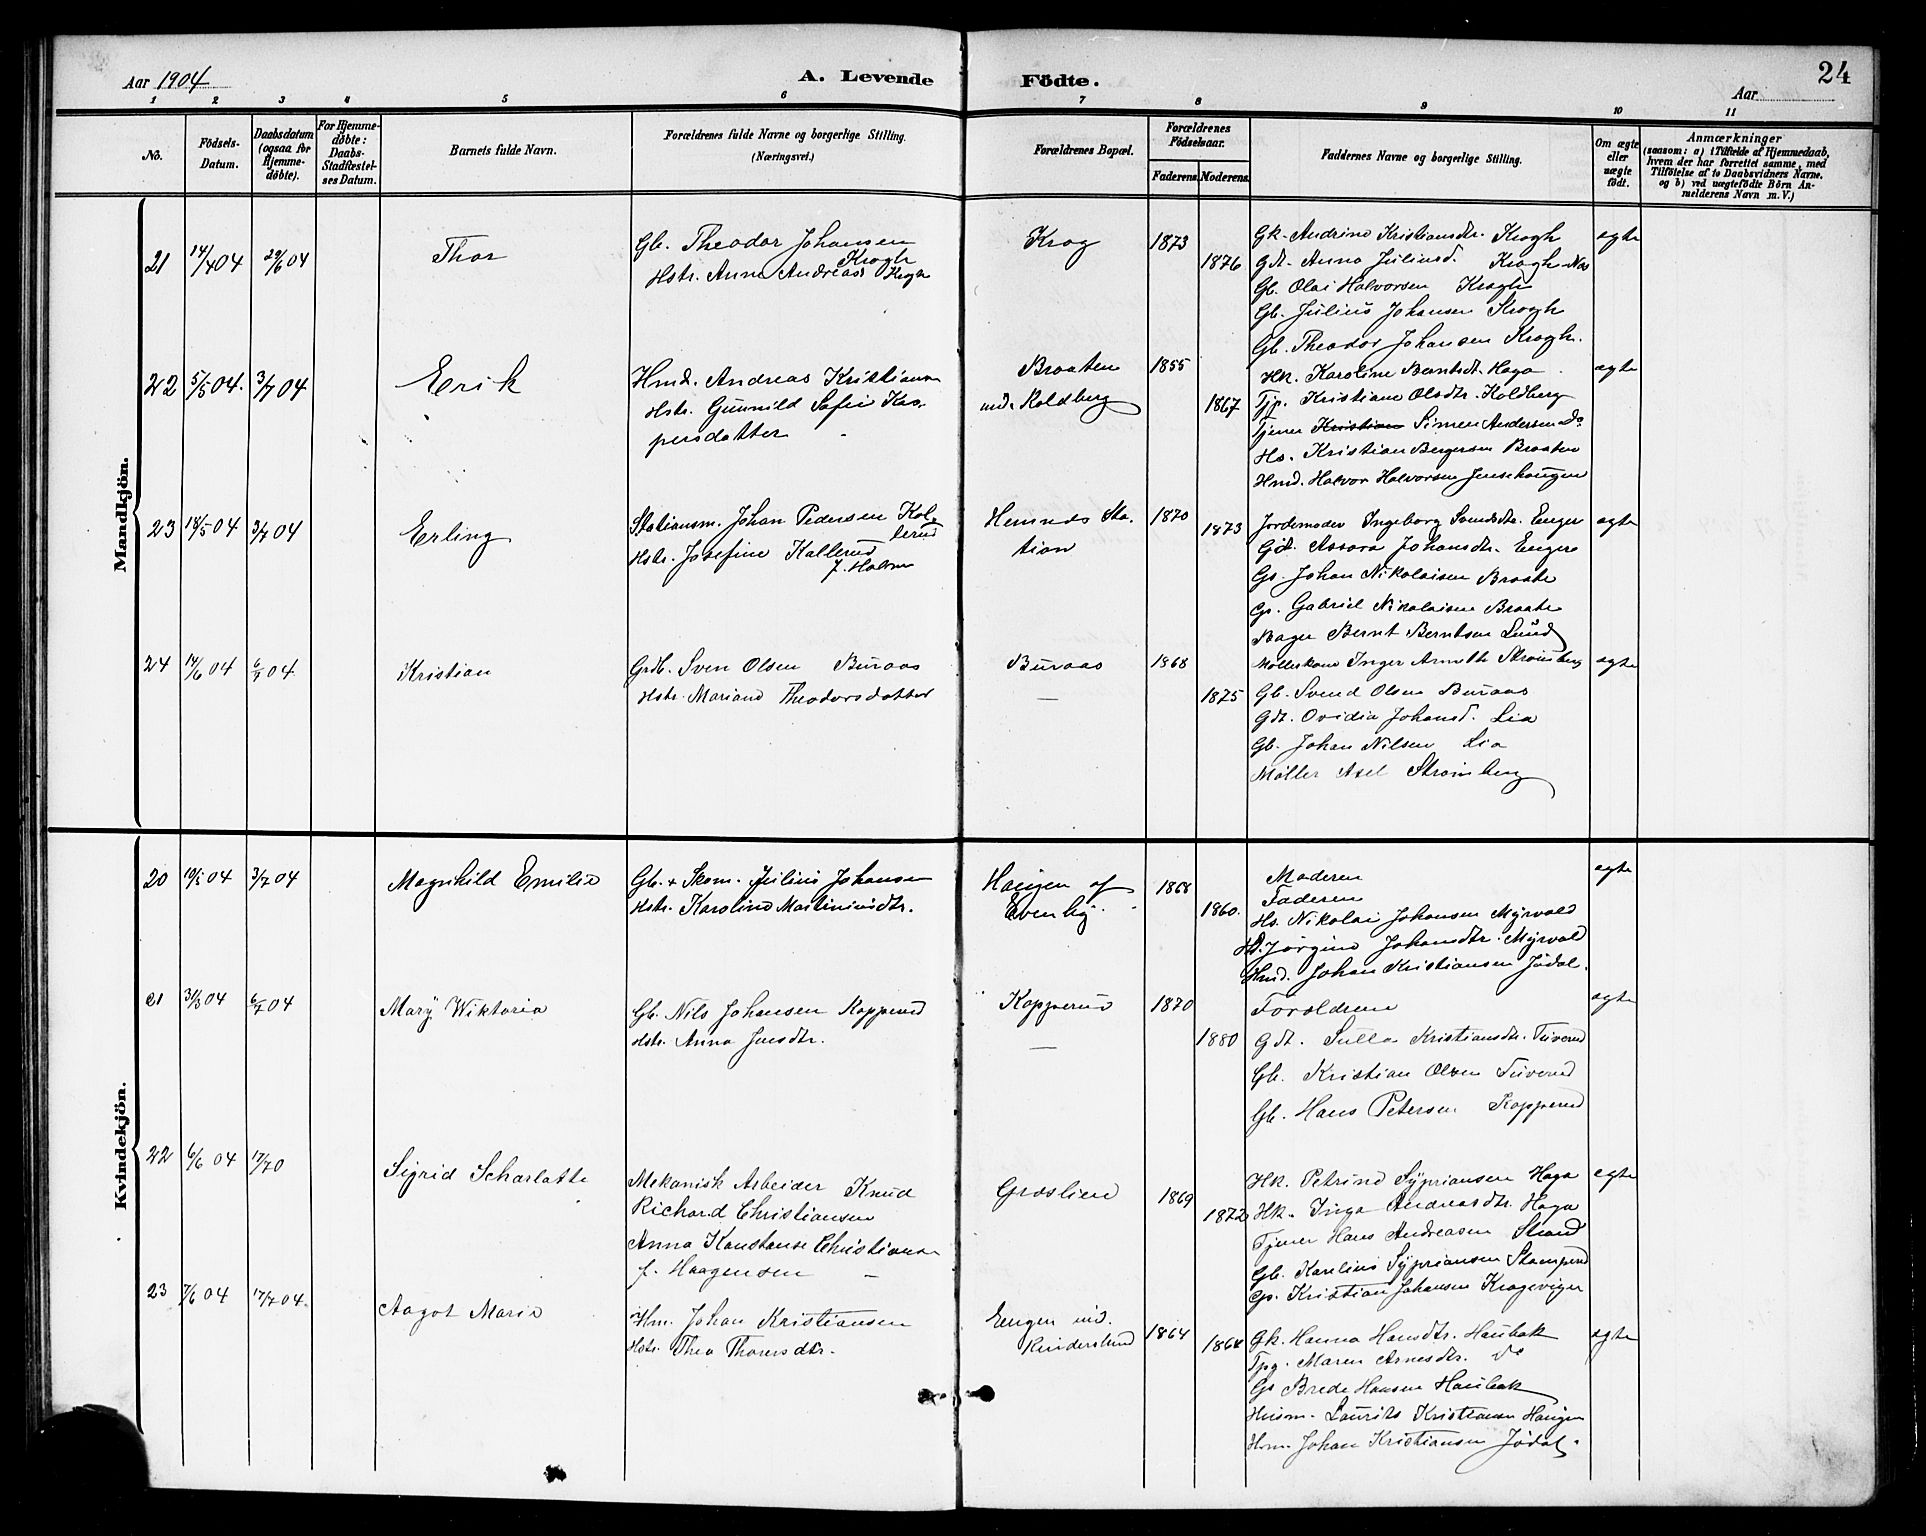 Aar 1904
A. Levende Födte.
24
Aar
1 2 3 4 5 6 7 8 9 10 11
No.
Födsels-
Datum.
Daabsdatum
(ogsaa for
Hjemme-
döbte).
For Hjemme-
döbte:
Daabs-
Stadfæstel-
ses Datum.
Barnets fulde Navn.
Forældrenes fulde Navne og borgerlige Stilling.
(Næringsvei.)
Forældrenes Bopæl.
Forældrenes
Födselsaar.
Faderens.
Moderens.
Faddernes Navne og borgerlige Stilling.
Om ægte
eller
uægte
födt.
Anmærkninger
(saasom: a) i Tilfælde af Hjemmedaab,
hvem der har forrettet samme, med
Tilföielse af to Daabsvidners Navne.
og b) ved uægtefödte Börn An-
melderens Navn m. V.)
Mandkjön.
21 14/4 04 29/6 04
Thor
Gb. Theodor Johansen
Krogh
Hstr. Anna Andreasd Krogh
Krog
1873
1876
Gk. Andrine Kristiansdtr. Krogh
Gdt. Anna Juliusd. Krogh
Gb. Olai Halvorsen Krogh
Gb. Julius Johansen Krogh
Gb. Theodor Johansen Krogh.
ægte
22 5/5 04. 3/7 04
Erik
Hmd. Andreas Kristiansen
Hstr. Gunnild Sofie Kas-
persdatter
Braaten
und. Koldberg
1855
1867
Hk. Karoline Berntsdt. Haga
Tjp. Kristiane Olsdtr. Koldberg
Tjener Kristian Simen Andersen do
Hs. Kristian Bergersen Braaten
Hmd. Halvor Halvorsen Jensehaugen
ægte
23 18/5 04 3/7 04
Erling
Stationsm. Johan Pedersen Kol-
lerud
Hstr. Josefine Kallerud
f. Holm
Hemnes Sta-
tion
1870
1873
Jordemoder Ingeborg Svendsdtr. Enger
Gdt. Assora Johansdtr. Enger
Gs. Johan Nikolaisen Braate
Gs. Gabriel Nikolaisen Braate
Bager Bernt Berntsen Lund
ægte
24 14/6 04 6/7 04
Kristian
Grdb. Sven Olsen Buraas
Hstr. Mariane Theodorsdatter
Buraas
—
1868
1875
Møllerkone Inger Strømsberg
Gb. Svend Olsen Buraas
Gdt. Ovidia Johansd. Lia
Gb. Johan Nilsen Lia
Møller Axel Strømsberg
ægte
Kvindekjön.
20 10/5 04 3/7 04
Magnhild Emilie
Gb. + Skom. Julius Johansen
Hstr. Karoline Martiniusdtr.
Haugen af
Evenby
1868
1860.
Moderen
Faderen
Hs. Nikolai Johansen Myrvold
Hd. Jørgine Johansdtr. Myrvold
Hmd. Johan Kristiansen Jødal.
ægte
21 31/3 04 6/7 04
Mary Wiktoria
Gb. Nils Johansen Kopperud
Hstr. Anna Jensdtr.
Kopperud
—
1870
1880
Forældrene
Gdt. Kristiansdtr. Tuverud
Gb. Kristian Olsen Tuverud
Gb. Hans Petersen Kopperud
ægte
22 6/6 04 17/70
Sigrid Scharlotte
Mekanisk Arbeider Knud
Richard Christiansen
Anna Konstanse Christiansen
f. Haagensen
Græslien
1869
1872
Hk. Petrine Sypriansen Haga
Hk. Inga Andreasdtr. Haga
Tjener Hans Andreasen Strand
Gb. Karelius Sypriansen Stomperud
Gs. Kristian Johansen Kragevigen
ægte
23 7/6 04 17/7 04.
Aagot Marie
Hm. Johan Kristiansen
Hstr. Thea Thoresdtr.
Engen und.
Kinderslund
1864
1868
Gk. Hanna Hansdtr. Haubak
Tpg. Maren Arnesdtr. do
Gs Brede Hansen Haubak
Husm. Laurits Kristiansen Haugen
Hmn. Johan Kristiansen Jødal.
ægte